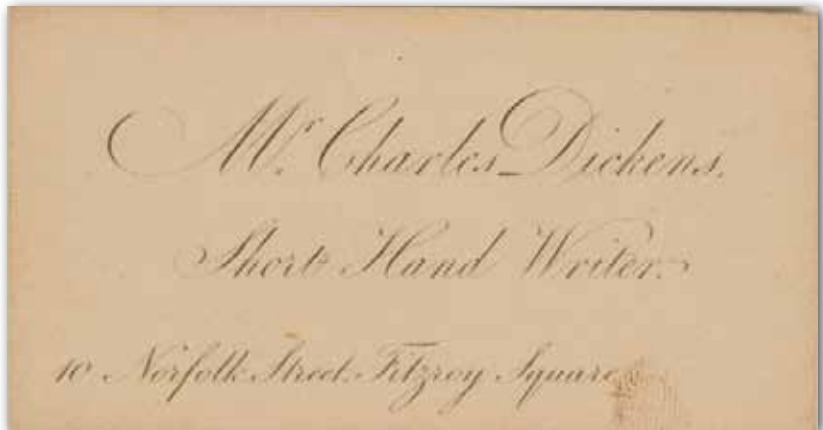 Mr. Charles Dickens.
Short Hand Writer.
10 Norfolk Street. Fitzroy Square